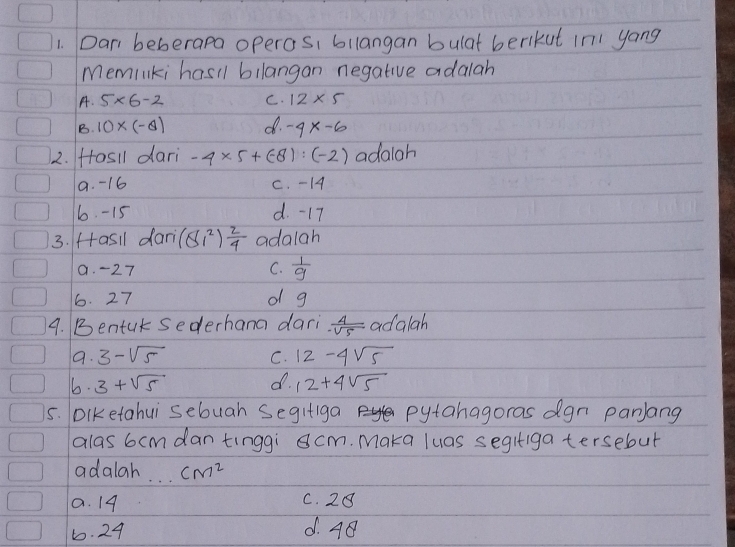 1. Dari beberapa operasi bilangan bulat berikut ini yang
Memiliki hasil bilangan negative adalah
A. 5×6-2 c. 12×5
B. 10×(-8) d. -4×-6
2. Hasil dari -4×5+(-8):(-2) adalah
a. -16 c. -14
b. -15 d. -17
3. Hasil dari (81²) 2/4 adalah
a. -27 c. 1/9
b. 27 d 9
4. Bentuk Sederhana dari 4/√5 adalah
a. 3-√5 c. 12-4√5
b. 3+√5 d. 12+4√5
5. Diketahui sebuah segitiga pytahagoras dgn panjang
alas 6cm dan tinggi 8cm. Maka luas segitiga tersebut
adalah ... cm²
a. 14 c. 28
b. 24 d. 48